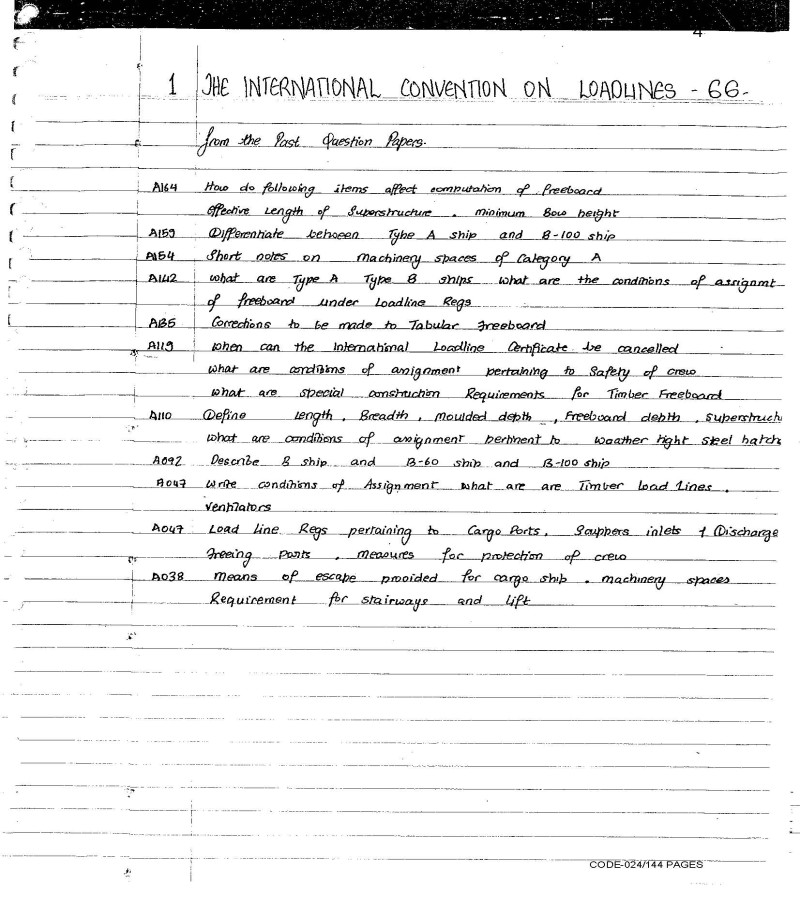 4
1 THE INTERNATIONAL CONVENTION ON LOADLINES - 66-
from the Past Question Papers.
A164 How do following items affect computation of freeboard
effective Length of Superstructure . minimum Bow height
A159 Differentiate between Type A ship and B-100 ship
A154 Short notes on machinery spaces of Category A
A142 what are Type A Type B ships what are the conditions of assignmt
of freeboard under Loadline Regs
A135 Corrections to be made to Tabular Freeboard
A119 when can the International Loadline Certificate be cancelled
what are conditions of assignment pertaining to Safety of crew
what are special construction Requirements for Timber Freeboard
A110 Define Length , Breadth , moulded depth , Freeboard depth , Superstructu
what are conditions of assignment pertinent to weather tight steel hatch
A092 Describe B ship and B-60 ship and B-100 ship
A047 Write conditions of Assignment what are are Timber Load Lines .
ventilators
A047 Load Line Regs pertaining to Cargo Ports, Scuppers inlets & Discharge
Freeing ports . measures for protection of crew
A038 means of escape provided for cargo ship . machinery spaces
Requirement for stairways and lift
CODE-024/144 PAGES